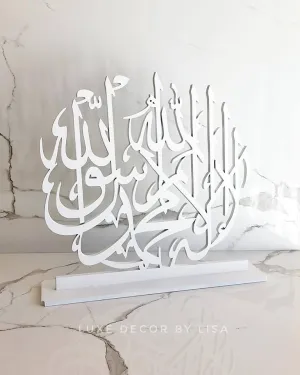 لا إله إلا الله محمد رسول الله
LUXE DECOR BY LISA